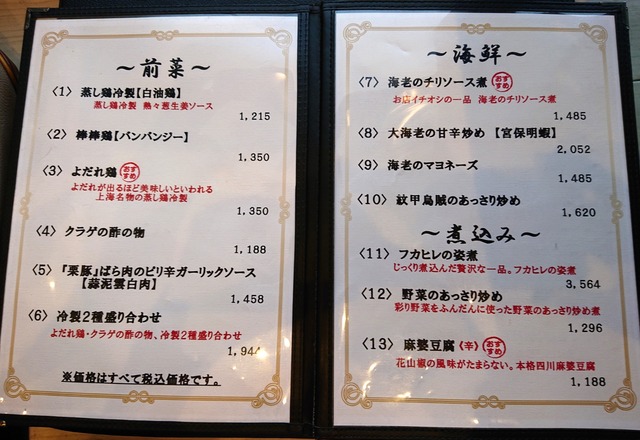 ～前菜～
〈1〉 蒸し鶏冷製【白油鶏】
蒸し鶏冷製 熱々葱生姜ソース
1,215
〈2〉 棒棒鶏【バンバンジー】
1,350
〈3〉 よだれ鶏 おすすめ
よだれが出るほど美味しいといわれる
上海名物の蒸し鶏冷製
1,350
〈4〉 クラゲの酢の物
1,188
〈5〉 『栗豚』ばら肉のピリ辛ガーリックソース
【蒜泥雲白肉】
1,458
〈6〉 冷製２種盛り合わせ
よだれ鶏・クラゲの酢の物、冷製２種盛り合わせ
1,944
※価格はすべて税込価格です。
～海鮮～
〈7〉 海老のチリソース煮 おすすめ
お店イチオシの一品 海老のチリソース煮
1,485
〈8〉 大海老の甘辛炒め 【宮保明蝦】
2,052
〈9〉 海老のマヨネーズ
1,485
〈10〉 紋甲烏賊のあっさり炒め
1,620
～煮込み～
〈11〉 フカヒレの姿煮
じっくり煮込んだ贅沢な一品。フカヒレの姿煮
3,564
〈12〉 野菜のあっさり炒め
彩り野菜をふんだんに使った野菜のあっさり炒め煮
1,296
〈13〉 麻婆豆腐 〈辛〉 おすすめ
花山椒の風味がたまらない。本格四川麻婆豆腐
1,188